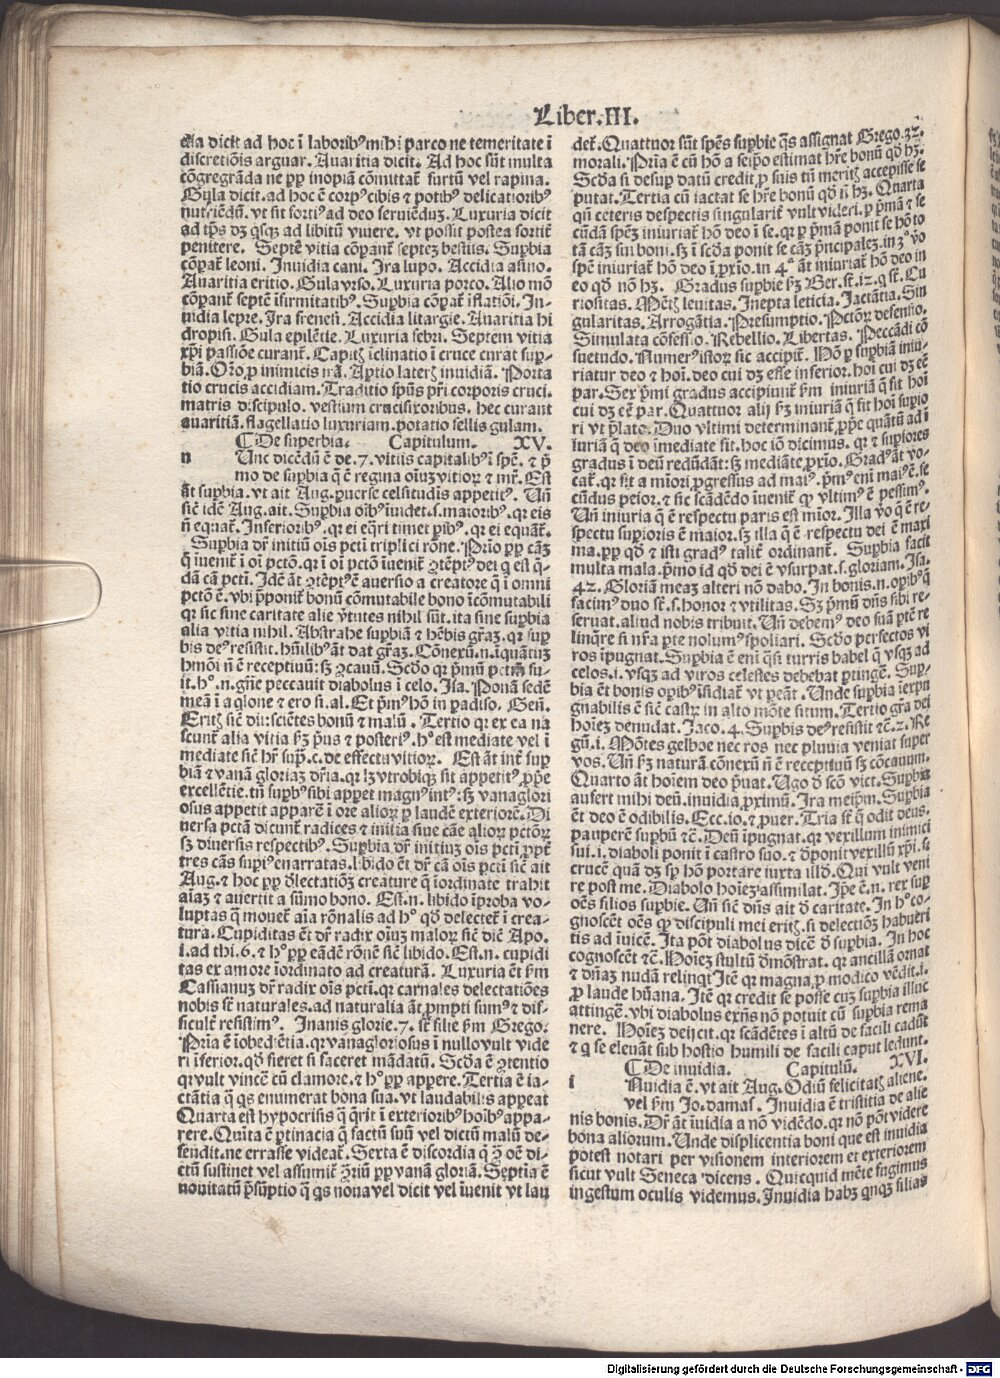 Liber.III.
dia dicit ad hoc ī laboribꝰ mihi parco ne temeritate ī
discretiōis arguar. Auaritia dicit. Ad hoc sūt multa
cōgregrāda ne ꝓp inopiā cōmittat̄ furtū vel rapina.
Gula dicit. ad hoc ē corpꝰ cibis ⁊ potibꝰ delicatioribꝰ
nutriēdū. vt sit fortiꝰ ad deo seruiēduꝫ. Luxuria dicit
ad tp̄s dꝫ qsqꝫ ad libitū viuere. vt possit postea sortit̄
penitere. Septē vitia cōparant̄ septeꝫ bestiis. Suꝑbia
cōparat̄ leoni. Inuidia cani. Ira lupo. Accidia asino.
Auaritia eritio. Gula vrso. Luxuria porco. Alio mō
cōparant̄ septē īfirmitatibꝰ. Suꝑbia cōpat̄ īflatiōi. In-
uidia lepre. Ira frenesi. Accidia litargie. Auaritia hi
dropisi. Gula epilētie. Luxuria febri. Septem vitia
xp̄i passiōe curant̄. Capitꝭ īclinatio ī cruce curat suꝑ-
biā. Or̄o ꝓ inimicis irā. Aptio laterꝭ inuidiā. Porta
tio crucis accidiam. Traditio sp̄us pr̄i corporis cruci.
matris discipulo. vestium crucifixoribus. hec curant
auaritiā. flagellatio luxuriam. potatio fellis gulam.
De superbia. Capitulum. XV.
n Unc dicēdū ē de .7. vitiis capitalibꝰ ī spē. ⁊ p̄
mo de suꝑbia q̄ ē regina oīuꝫ vitioꝝ ⁊ mr̄. Est
āt suꝑbia. vt ait Aug. puerse celsitudīs appetitꝰ. Un̄
sic̄ idē Aug. ait. Suꝑbia oībꝰ īuidet. s. maioribꝰ. qꝛ eis
n̄ equat̄. Inferioribꝰ. qꝛ ei eq̄ri timet pībꝰ. qꝛ ei equāt̄.
Suꝑbia dr̄ initiū oīs pcti triplici rōne. Prīo ꝓp cāꝫ
q̄ īuenit̄ ī oī pctō. qꝛ ī oī pctō īuenit̄ ꝯtēptꝰ dei q est q̄-
dā cā pcti. Idē āt ꝯtēptꝰ ē auersio a creatore q̄ ī omni
pctō ē. vbi p̄ponit̄ bonū cōmutabile bono īcōmutabili
qꝛ sic sine caritate alie v̄tutes nihil sūt. ita sine suꝑbia
alia vitia nihil. Abstrahe suꝑbiā ⁊ hēbis gr̄aꝫ. qꝛ suꝑ
bis deꝰ resistit. hūilibꝰ āt dat gr̄aꝫ. Cōnexū .n. īquātuꝫ
hmōi n̄ ē receptiuū: sꝫ ꝯcauū. Scdo qꝛ pmū pctm̄ fu-
it. hꝰ .n. gn̄e peccauit diabolus ī celo. Isa. Ponā sedē
meā ī aqlone ⁊ ero si. al. Et pmꝰ hō in padiso. Gen̄.
Eritꝭ sic̄ dii: sciētes bonū ⁊ malū. Tertio qꝛ ex ea na
scunt̄ alia vitia sꝫ pus ⁊ posteriꝰ. hꝰ est mediate vel ī
mediate sic̄ hr̄ sup̄. c. de effectu vitioꝝ. Est āt int̄ suꝑ
biā ⁊ vanā gloriaꝫ dr̄ia. qꝛ lꝫ vtrobiqꝫ sit appetitꝰ ꝓpe
excellētie. tn̄ suꝑbꝰ sibi appet magnꝰ intꝰ: sꝫ vanaglori
osus appetit apparē ī ore alioꝝ ꝑ laudē exteriorē. Di
uersa pctā dicunt̄ radices ⁊ initia siue cāe alioꝝ pctōꝝ
sꝫ diuersis respectibꝰ. Suꝑbia dr̄ initiuꝫ oīs pcti ꝓpt̄
tres cās supiꝰ enarratas. libido ēt dr̄ cā oīs pcti sic̄ ait
Aug. ⁊ hoc ꝓp dlectatiōꝫ creature q̄ iordinate trahit
aīaꝫ ⁊ auertit a sūmo bono. Est .n. libido īproba vo-
luptas q̄ mouet̄ aīa rōnalis ad hꝰ qd delectet̄ ī crea-
tura. Cupiditas ēt dr̄ radix oīuꝫ maloꝝ sic̄ dic̄ Apo.
i. ad thi. 6. ⁊ hꝰ ꝓp eādē rōnē sic̄ libido. Est .n. cupidi
tas ex amore īordinato ad creaturā. Luxuria ēt fm̄
Cassianuꝫ dr̄ radix oīs pcti. qꝛ carnales delectatiōes
nobis st̄ naturales. ad naturalia āt prompti sumꝰ ⁊ dif-
ficult̄ resistimꝰ. Inanis glorie .7. st̄ filie fm̄ Grego.
Prīa ē iobediētia. qꝛ vanagloriosus ī nullo vult vide
ri īferior. qd fieret si faceret mādatū. Scda ē ꝯtentio
qꝛ vult vincē cū clamore. ⁊ hꝰ ꝓp appere. Tertia ē ia-
ctātia q̄ qs enumerat bona sua. vt laudabilis appeat
Quarta est hypocrisis q̄ q̄rit ī exterioribꝰ hoībꝰ appa-
rere. Quīta ē ptinacia q̄ factū suū vel dictū malū de-
fendit. ne errasse videat̄. Sexta ē discordia q̄ ꝯ oē di-
ctū sustinet vel assumit ꝯriū ꝓp vanā gloriā. Septīa ē
nouitatū psūptio q̄ qs noua vel dicit vel īuenit vt lau
det̄. Quattuor sūt sp̄es suꝑbie qs assignat Grego. 32.
morali. Prīa ē cū hō a seipo estimat hr̄e bonū qd hꝫ.
Scda si desuꝑ datū credit ꝓ suis tn̄ meritꝭ accepisse se
putat. Tertia cū iactat se hr̄e bonū qd n̄ hꝫ. Quarta
qn̄ ceteris despectis singularit̄ vult videri. ꝑ pmā ⁊ se
cūdā spēꝫ iniuriat̄ hō deo ī se. qꝛ ꝑ pmā ponit se hō to
tā cāꝫ sui boni. sꝫ ī scda ponit se cāꝫ pncipaleꝫ. in 3ª vo
spē iniuriat̄ hō deo ī pxio. in 4ª āt iniuriat̄ hō deo in
eo qd nō hꝫ. Gradus suꝑbie sꝫ Ber. st̄ .12. q st̄. Cu
riositas. Mētꝭ leuitas. Inepta leticia. Jactātia. Sin
gularitas. Arrogātia. Presumptio. Pctōꝝ defensio.
Simulata cōfessio. Rebellio. Libertas. Peccādi cō
suetudo. Numerꝰ istoꝝ sic accipit̄. Nō ꝑ suꝑbiā iniu-
riatur deo ⁊ hoī. deo cui dꝫ esse inferior. hoī cui dꝫ eē
par. Sex pmi gradus accipiunt̄ fm̄ iniuriā q̄ fit hoī
cui dꝫ eē par. Quattuor alii sꝫ iniuriā q̄ fit hoī supio
ri vt plato. Duo vltimi determinant̄ ꝓpe quātū ad ī
iuriā q̄ deo imediate fit. hoc iō dicimus. qꝛ ⁊ supiores
gradus ī deū redūdāt: sꝫ mediāte pxio. Gradꝰ āt vo-
cat̄. qꝛ fit a miori progressus ad maiꝰ. pmꝰ eni maiꝰ ē. se
cūdus peior. ⁊ sic scādēdo īuenit̄ q vltimꝰ ē pessimꝰ.
Un̄ iniuria q̄ ē respectu paris est mīor. Illa vo q̄ ē re-
spectu supioris ē maior. sꝫ illa q̄ ē respectu dei ē maxi
ma. ꝓp qd ⁊ isti gradꝰ talit̄ ordinant̄. Suꝑbia facit
multa mala. pmo id qd dei ē vsurpat. s. gloriam. Isa.
42. Gloriā meaꝫ alteri nō dabo. In bonis .n. opibꝰ q̄
facimꝰ duo st̄. s. honor ⁊ vtilitas. Sꝫ pmū dn̄s sibi re-
seruat. aliud nobis tribuit. Un̄ debemꝰ deo suā ptē re
linqre si nr̄a pte nolumꝰ spoliari. Scdo perfectos vi
ros īpugnat. Suꝑbia ē eni q̄si turris babel q̄ vsqꝫ ad
celos. i. vsqꝫ ad viros celestes debebat ptingē. Suꝑ-
bia ēt bonis opibꝰ īsidiat̄ vt peāt. Unde suꝑbia īexpu
gnabilis ē sic̄ castꝝ in alto mōte situm. Tertio gr̄a dei
hoīeꝫ denudat. Jaco. 4. Suꝑbis deꝰ resistit ⁊c̄. 2. Re
gū. i. Mōtes gelboe nec ros nec pluuia veniat super
vos. Un̄ sꝫ naturā cōnexū n̄ ē receptiuū sꝫ cōcauum.
Quarto āt hoīem deo p̄uat. Ugo d scō vict. Suꝑbia
aufert mihi deū. inuidia pximū. Ira meipm. Suꝑbia
ēt deo ē odibilis. Ecc. io. ⁊ puer. Tria st̄ q̄ odit deus.
pauperē suꝑbū ⁊c̄. Deū īpugnat. qꝛ vexillum inimici
sui. i. diaboli ponit ī castro suo. ⁊ dponit vexillū xp̄i. s.
crucē quā dꝫ sp̄ hō portare iuxta illd. Qui vult veni
re post me. Diabolo hoīeꝫ assimilat. Ipe ē .n. rex suꝑ
oēs filios suꝑbie. Un̄ sic̄ dn̄s ait d caritate. In hꝰ co-
gnoscēt oēs q discipuli mei eritꝭ. si delectiōꝫ habueri
tis ad iuicē. Ita pōt diabolus dicē d suꝑbia. In hoc
cognoscēt ⁊c̄. Hoīeꝫ stultū dmōstrat. qꝛ ancillā ornat
⁊ dn̄aꝫ nudā relinqt. Itē qꝛ magna ꝓ modico vēdit. i.
ꝓ laude hūana. Itē qꝛ credit se posse cuꝫ suꝑbia illuc
attingē. vbi diabolus exn̄s nō potuit cū suꝑbia rema
nere. Hoīeꝫ deijcit. qꝛ scādētes ī altū de facili cadūt
⁊ q se eleuāt sub hostio humili de facili caput ledunt.
De inuidia. Capitulū. XVI.
i Nuidia ē. vt ait Aug. Odiū felicitatꝭ aliene.
vel fm̄ Jo. damaſ. Inuidia ē tristitia de alie
nis bonis. Dr̄ āt īuidia a nō vidēdo. qꝛ nō pōt videre
bona aliorum. Unde displicentia boni que est inuidia
potest notari per visionem interiorem et exteriorem
sicut vult Seneca dicens. Quicquid mēte fugimus
ingestum oculis videmus. Inuidia habꝫ qnqꝫ filias
Digitalisierung gefördert durch die Deutsche Forschungsgemeinschaft - DFG